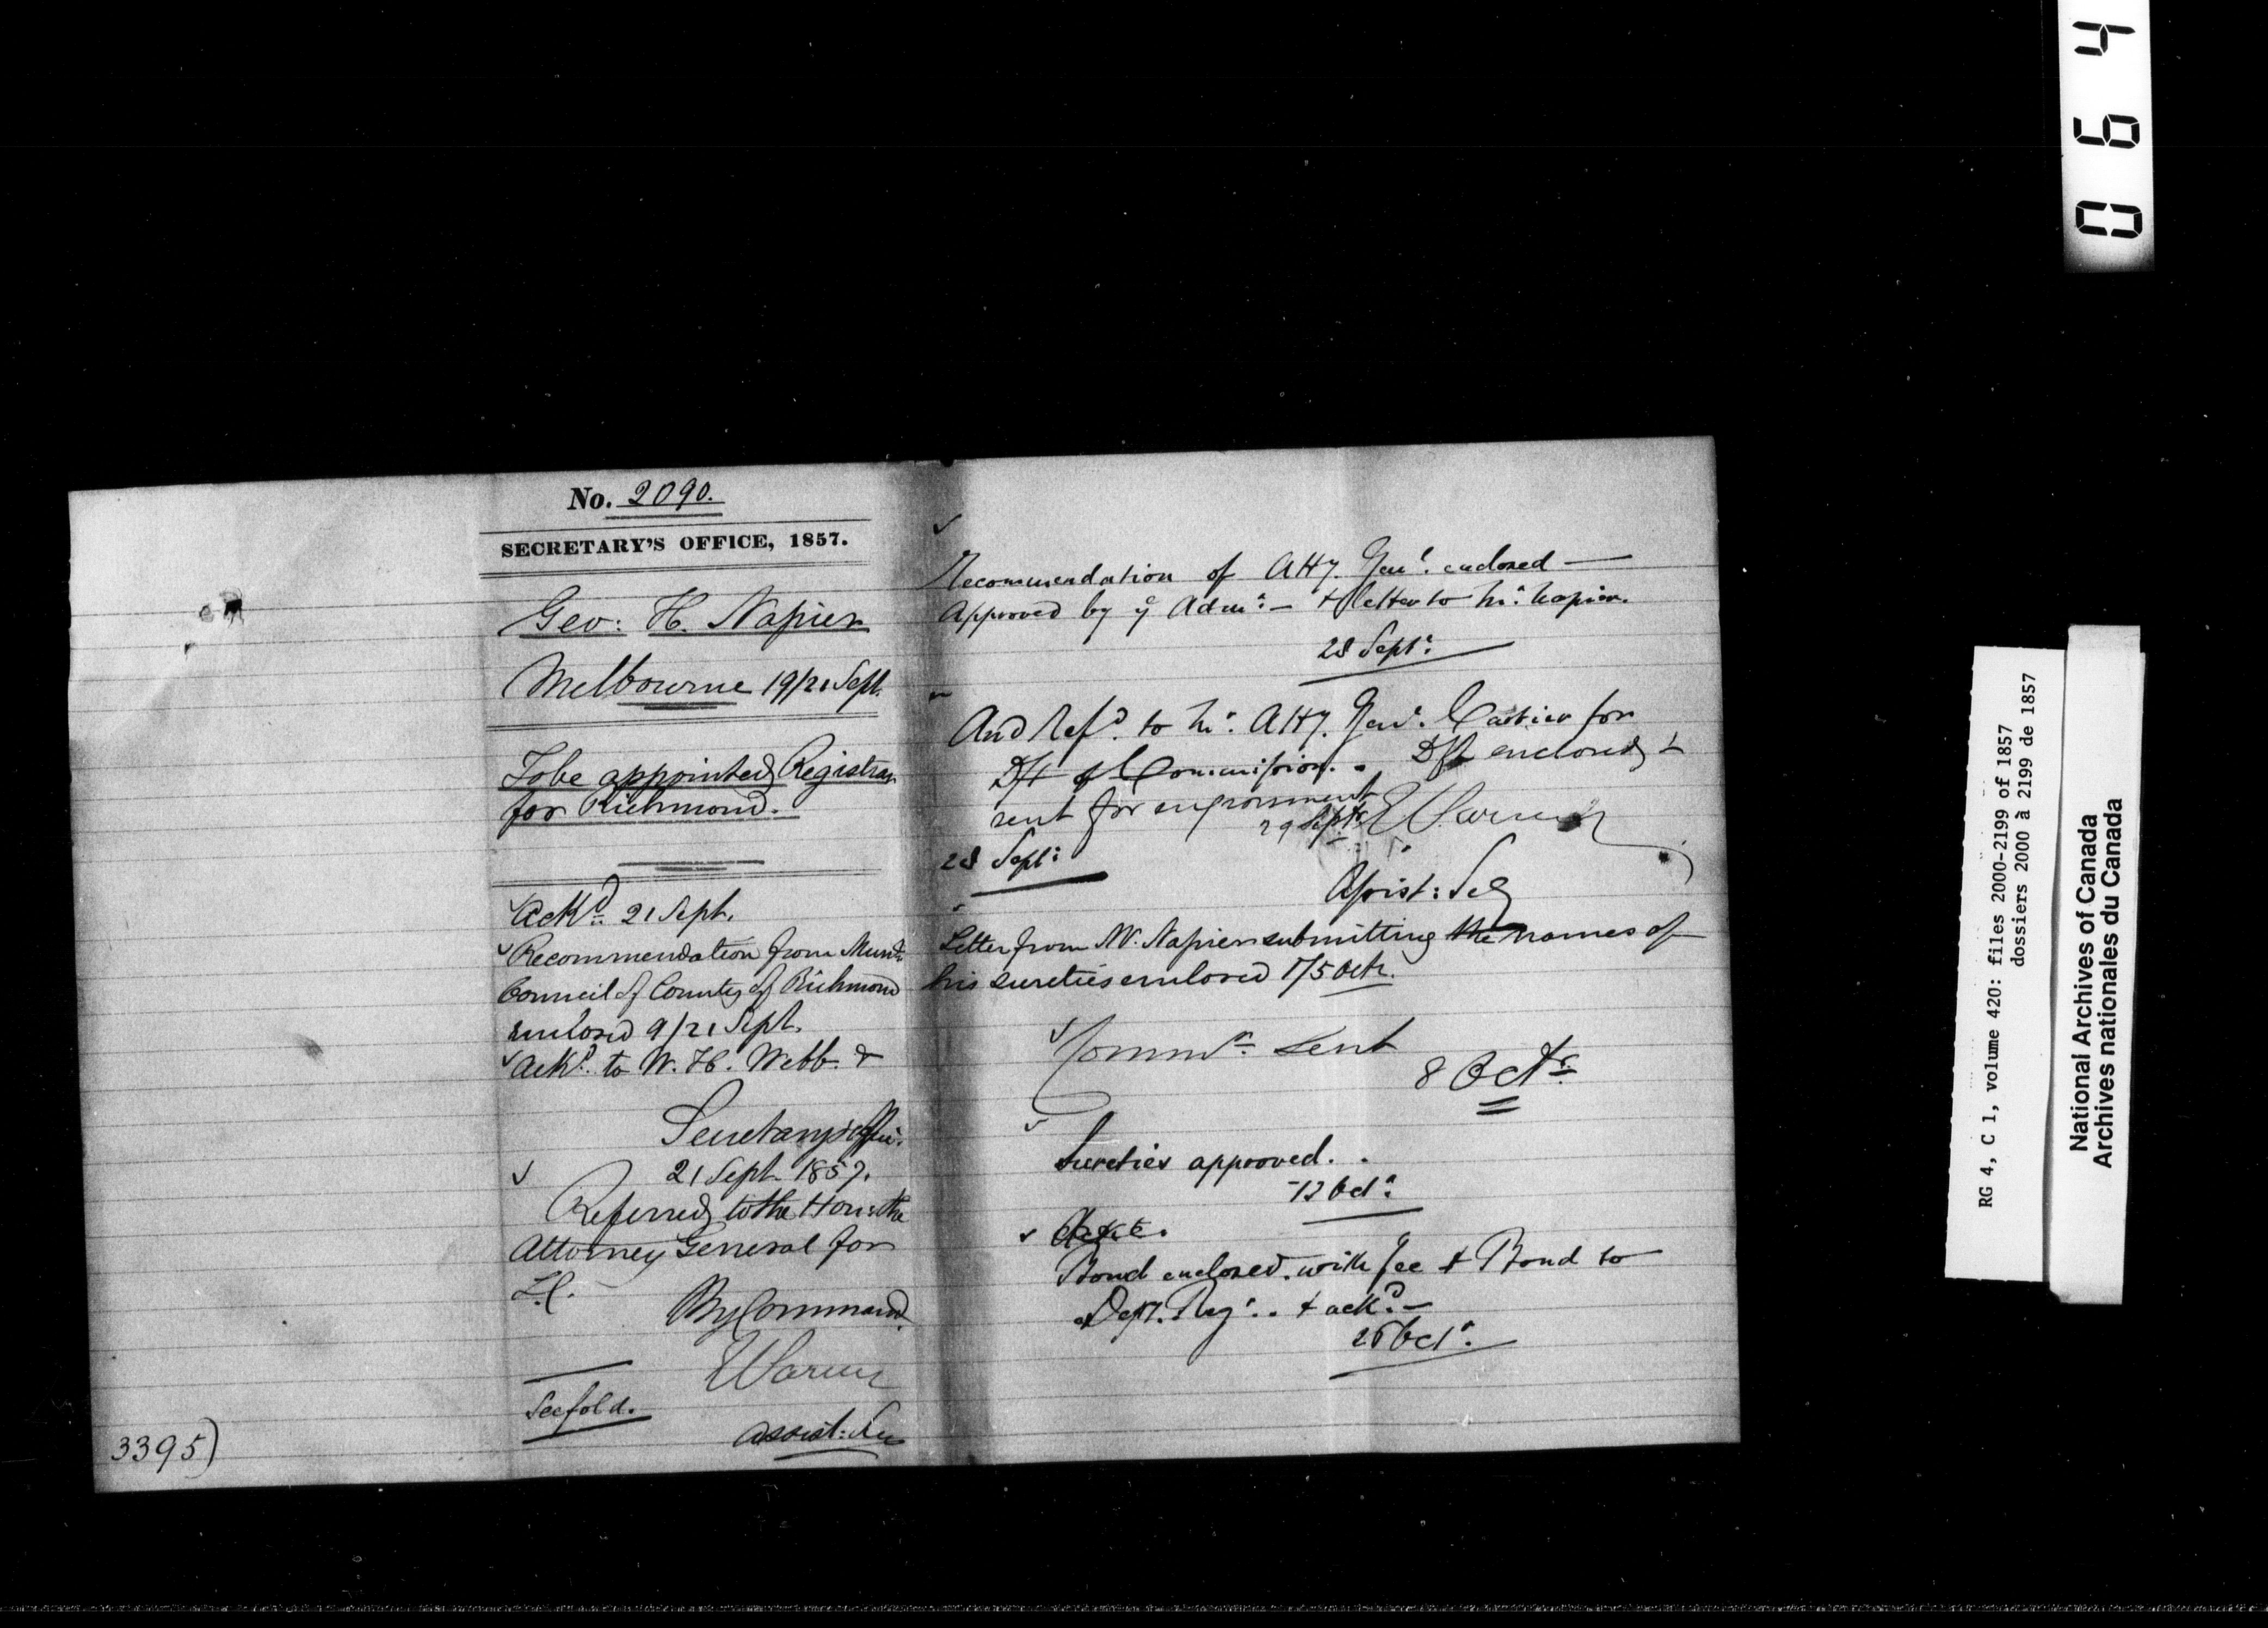 No. 2090.
SECRETARY'S OFFICE, 1857.
Geo: H. Napier
Melbourne 19/21 Sept.
To be appointed Registrar
for Richmond.
Ackd 21 Sept.
Recommendation from Munl
Council of County of Richmond
enclosed 9/21 Sept.
Ackd to W. H. Webb &
Secretary's Office.
21 Sept 1857.
Referred to the Hon: the
Attorney General for
L.C.
By Command.
Assist: Sec
3395)
Recommendation of Atty. Genl. enclosed —
Approved by ye Admr: — + letter to Mr. Napier.
28 Sept:
And Refd. to Mr. Atty. Genl. Cartier for
Dft of Commission. Dft enclosed &
sent for engrossment
29 Septr.
28 Sept:
Assist: Secy
Letter from Mr. Napier submitting the names of
his sureties enclosed 1/5 Octr.
Commn. sent
8 Octr.
Sureties approved.
12 Octr:
Bond enclosed with fee & Bond to
Depy. Regr. . + ackd. —
Octr:
0 6 4
RG 4, C 1, volume 420: files 2000-2199 of 1857
dossiers 2000 à 2199 de 1857
National Archives of Canada
Archives nationales du Canada